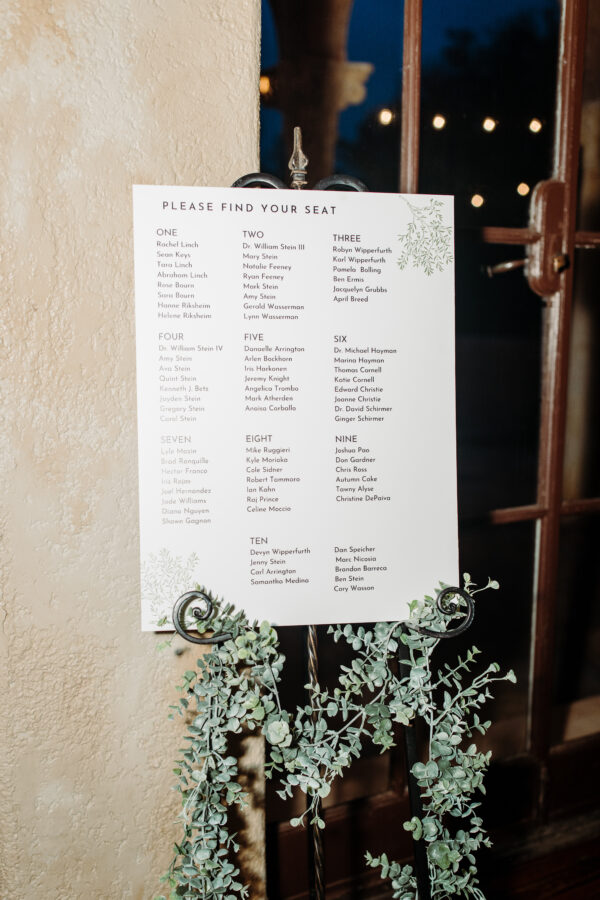 PLEASE FIND YOUR SEAT
ONE
Rachel Linch
Sean Keys
Tara Linch
Abraham Linch
Rose Bourn
Sara Bourn
Hanne Riksheim
Helene Riksheim
TWO
Dr. William Stein III
Mary Stein
Natalie Feeney
Ryan Feeney
Mark Stein
Amy Stein
Gerald Wasserman
Lynn Wasserman
THREE
Robyn Wipperfurth
Karl Wipperfurth
Pamela Bolling
Ben Ermis
Jacquelyn Grubbs
April Breed
FOUR
Dr. William Stein IV
Amy Stein
Ava Stein
Quint Stein
Kenneth J. Betz
Jayden Stein
Gregory Stein
Carol Stein
FIVE
Danaelle Arrington
Arlen Backhorn
Iris Haekonen
Jeremy Knight
Angelica Trombo
Mark Atherden
Anaisa Carballo
SIX
Dr. Michael Hayman
Marina Hayman
Thomas Cornell
Katie Cornell
Edward Christie
Joanne Christie
Dr. David Schirmer
Ginger Schirmer
SEVEN
Lyle Mazin
Brad Ranquille
Hector Franco
Iris Rojas
Joel Hernandez
Jade Williams
Diana Nguyen
Shawn Gagnon
EIGHT
Mike Ruggieri
Kyle Morioka
Cole Sidner
Robert Tammaro
Ian Kahn
Raj Prince
Celine Moccio
NINE
Joshua Pao
Don Gardner
Chris Ross
Autumn Cake
Tawny Alyse
Christine DePaiva
TEN
Devyn Wipperfurth
Jenny Stein
Carl Arrington
Samantha Medina
Dan Speicher
Marc Nicosia
Brandon Barreca
Ben Stein
Cory Wasson